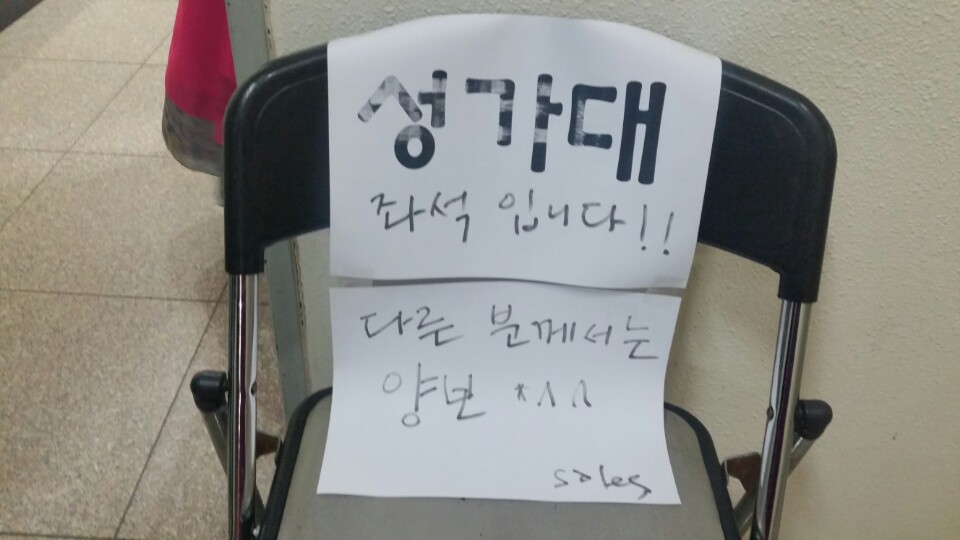 성가대
좌석 입니다!!
다른 분께서는
양보 *^^
sales